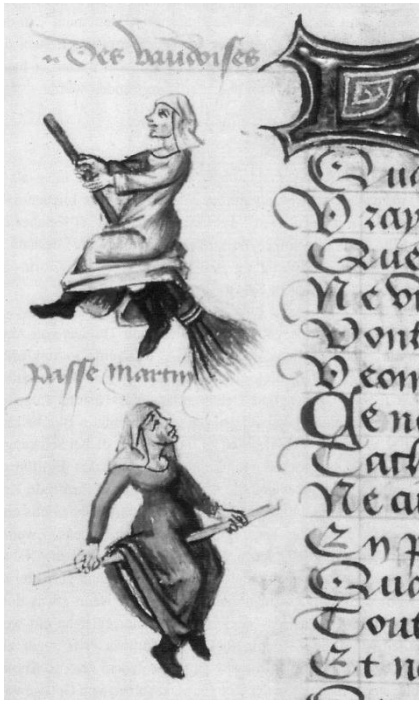 Des vaudoises
passe martin
Qua
Vray
Que
Ne v
Vont
Veon
Qe n
Cach
Ne a
En p
Qua
Tout
Et n